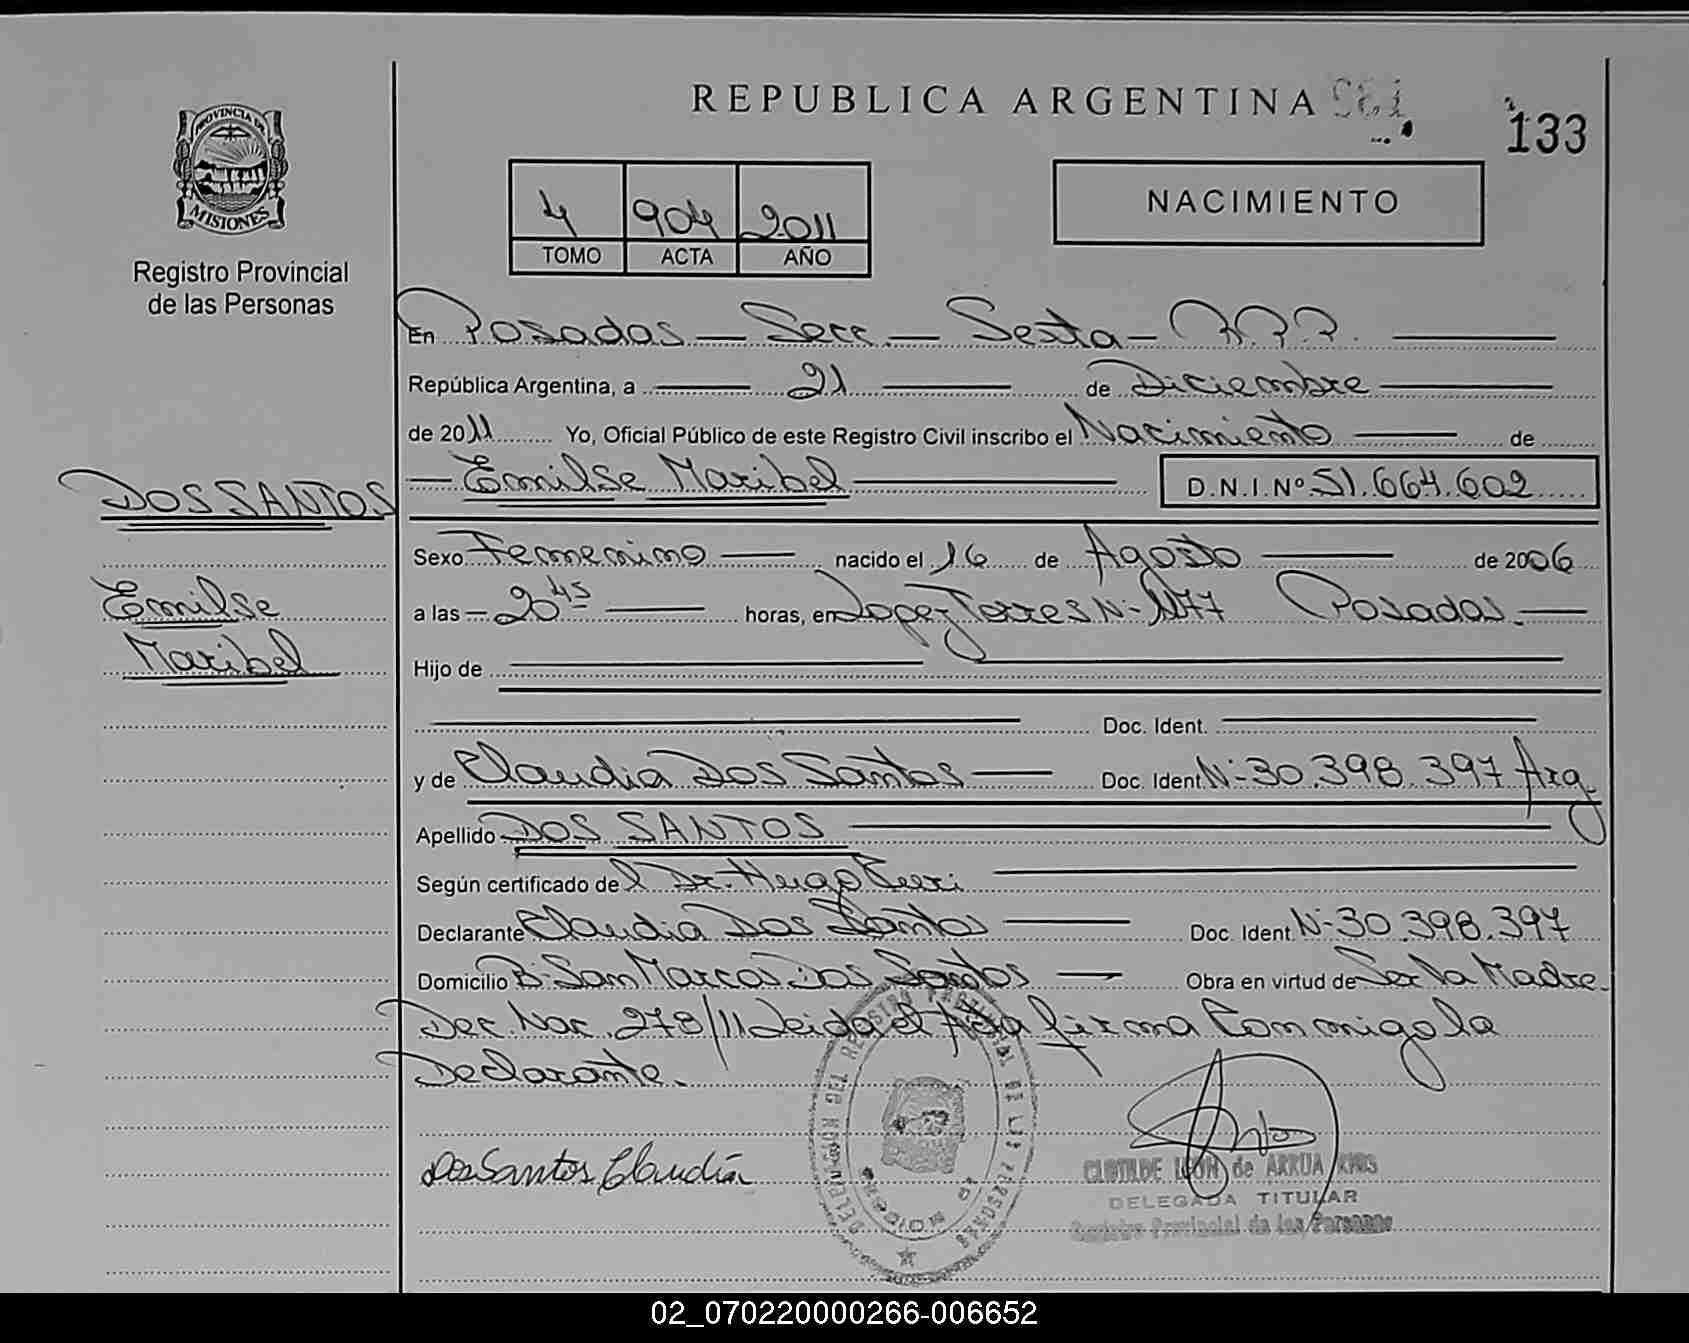 REPUBLICA ARGENTINA
133
PROVINCIA DE
MISIONES
Registro Provincial
de las Personas
4 904 2011
TOMO ACTA AÑO
NACIMIENTO
En Posadas — Secc. — Sexta — R.P.P.
República Argentina, a 21 de Diciembre
de 2011 Yo, Oficial Público de este Registro Civil inscribo el Nacimiento de
— Emilse Maribel D.N.I.Nº 51.664.602
DOS SANTOS
Emilse
Maribel
Sexo Femenino nacido el 16 de Agosto de 2006
a las — 20 45 horas, en Lopez Torres Nº 1177 Posadas. —
Hijo de
Doc. Ident.
y de Claudia Dos Santos Doc. Ident Nº 30.398.397 Arg.
Apellido DOS SANTOS
Según certificado del Dr. Hugo
Declarante Claudia Dos Santos Doc. Ident. Nº 30.398.397
Domicilio Bº San Marcos Dos Santos Obra en virtud de Ser la Madre.
Dec. Nac. 278/11 Leida el Acta firma Conmigo la
Declarante.
Dos Santos Claudia
CLOTILDE LEON de ARRUA
DELEGADA TITULAR
Registro Provincial de las Personas
02_070220000266-006652